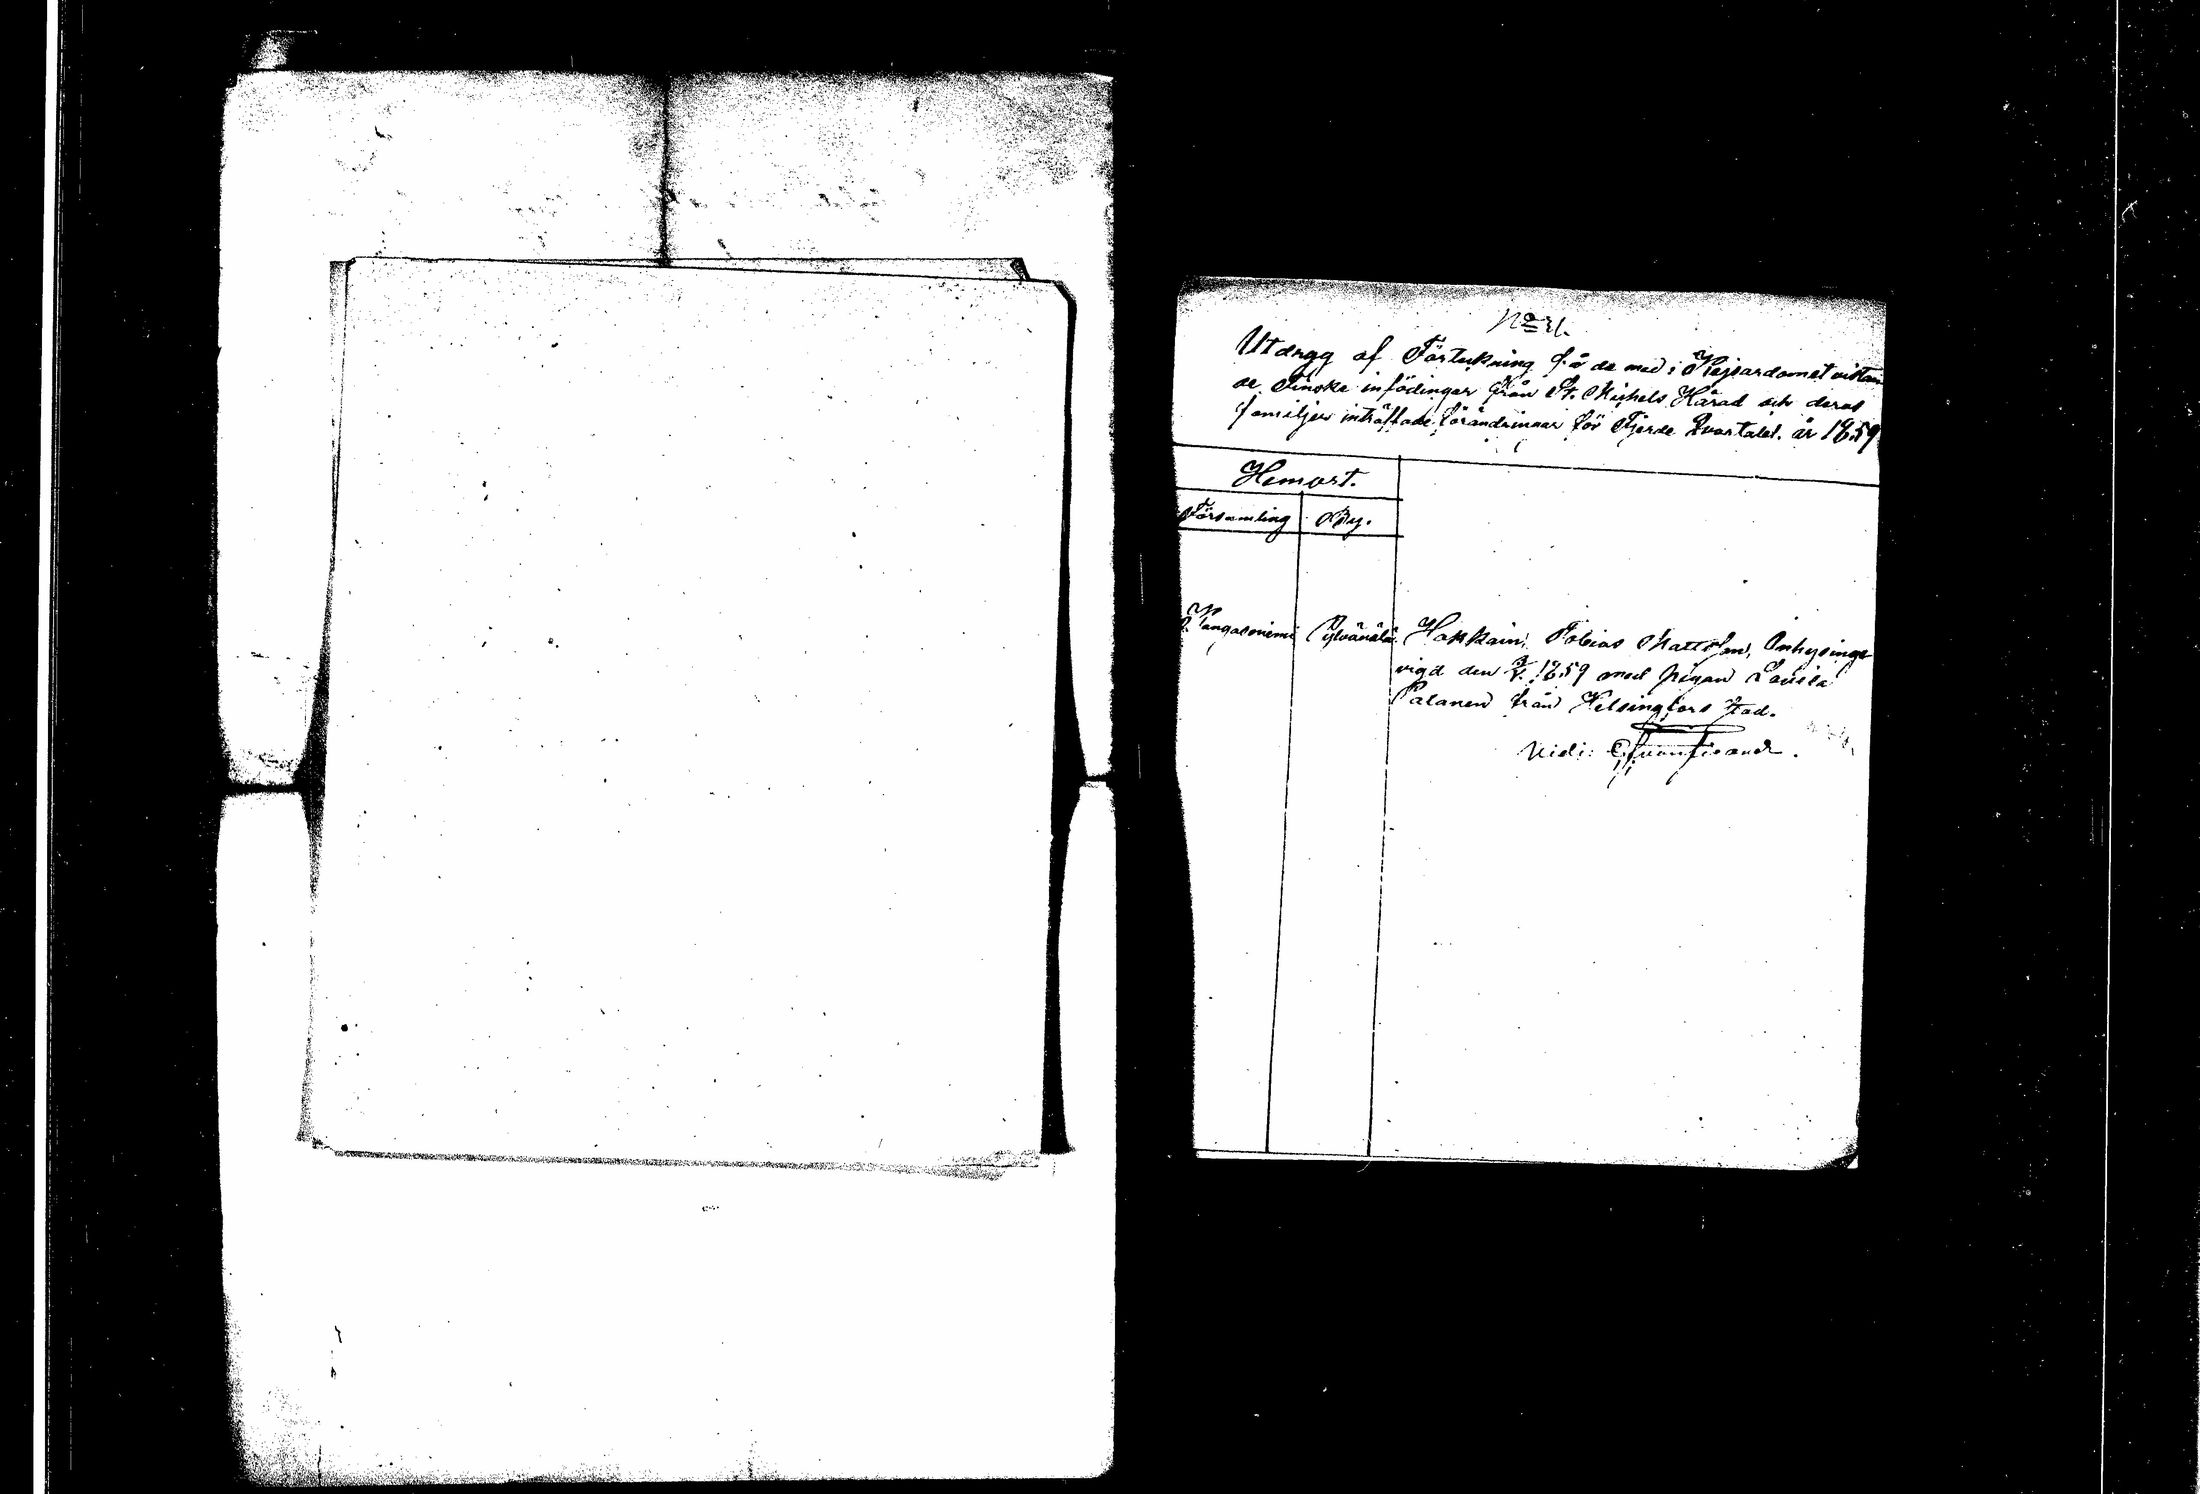 Utdrag af Förtekning på de med i Kejsardömet vistan
de Finske infödingar från St. Michels Härad och deras
familjer inträffade förändringar för Fjerde Qvartalet. år 1859
Hemort.
Församling By.
Kangasniemi Pylvänälä Hakkain, Tobias Mattsson, Inhysinge
vigd den 1859 med pigan Lovisa
Palanen från Helsingfors stad.
Vidi: